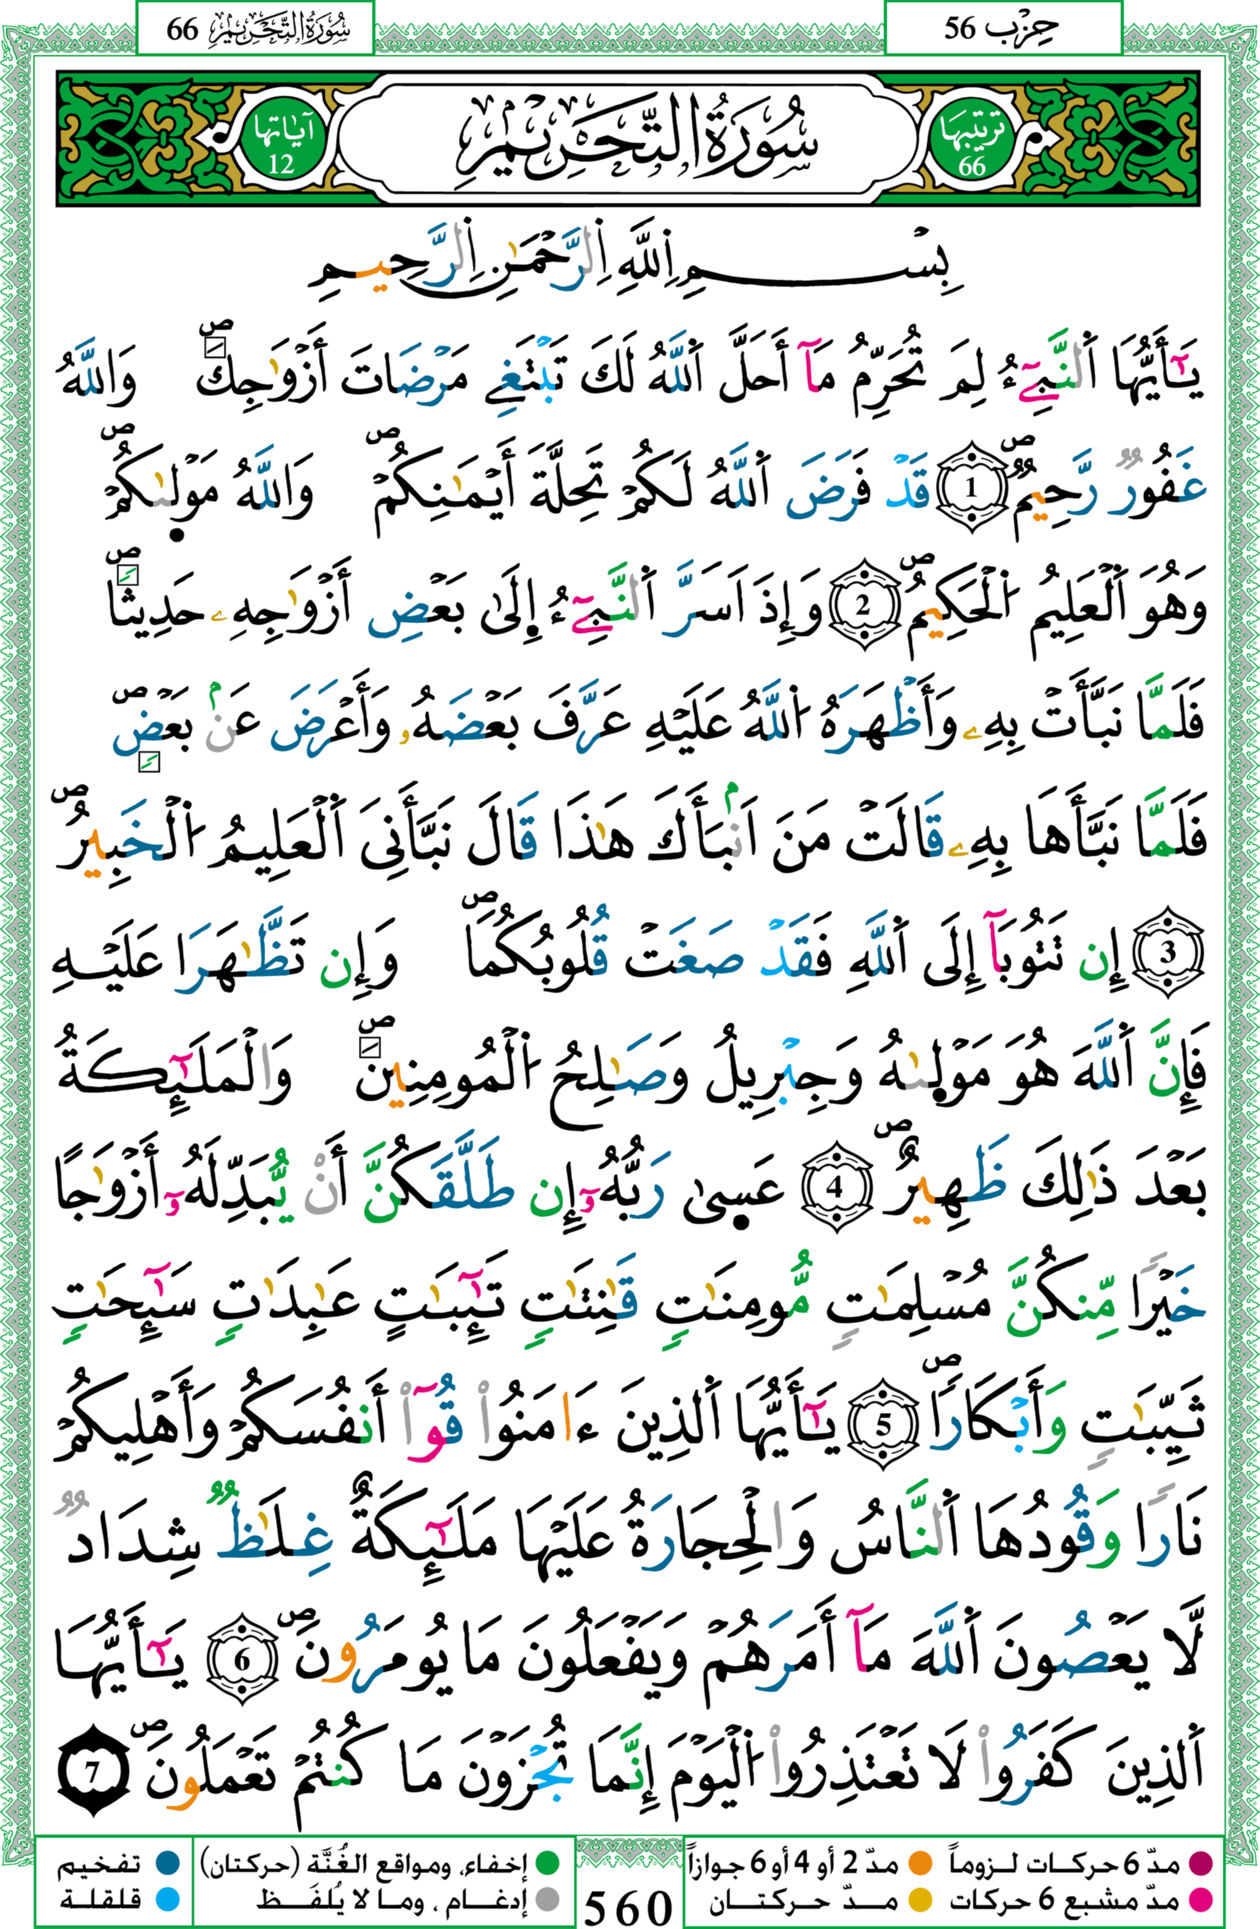 حِزْب 56
سُورَةُ التَّحْرِيمِ 66
تَرتيبها 66
سُورَةُ التَّحْرِيمِ
آيَاتها 12
بِسْمِ اِللَّهِ اِلرَّحْمَٰنِ اِلرَّحِيمِ
يَٰٓأَيُّهَا اَلنَّبِےٓءُ لِمَ تُحَرِّمُ مَآ أَحَلَّ اَللَّهُ لَكَ تَبْتَغِے مَرْضَاتَ أَزْوَٰجِكَۖ وَاللَّهُ
غَفُورٌ رَّحِيمٌۖ 1 قَدْ فَرَضَ اَللَّهُ لَكُمْ تَحِلَّةَ أَيْمَٰنِكُمْۖ وَاللَّهُ مَوْل۪يٰكُمْۖ
وَهُوَ اَلْعَلِيمُ اُلْحَكِيمُۖ 2 وَإِذَ اَسَرَّ اَلنَّبِےٓءُ إِلَىٰ بَعْضِ أَزْوَٰجِهِۦ حَدِيثاٗۖ
فَلَمَّا نَبَّأَتْ بِهِۦ وَأَظْهَرَهُ اُللَّهُ عَلَيْهِ عَرَّفَ بَعْضَهُۥ وَأَعْرَضَ عَنۢ بَعْضٖۖ
فَلَمَّا نَبَّأَهَا بِهِۦ قَالَتْ مَنَ اَنۢبَأَكَ هَٰذَا قَالَ نَبَّأَنِيَ اَلْعَلِيمُ اُلْخَبِيرُۖ
3 إِن تَتُوبَآ إِلَى اَللَّهِ فَقَدْ صَغَتْ قُلُوبُكُمَاۖ وَإِن تَظَّٰهَرَا عَلَيْهِ
فَإِنَّ اَللَّهَ هُوَ مَوْل۪يٰهُ وَجِبْرِيلُ وَصَٰلِحُ اُلْمُومِنِينَۖ وَالْمَلَٰٓئِكَةُ
بَعْدَ ذَٰلِكَ ظَهِيرٌۖ 4 عَس۪يٰ رَبُّهُۥٓ إِن طَلَّقَكُنَّ أَنْ يُّبَدِّلَهُۥٓ أَزْوَٰجاً
خَيْراٗ مِّنكُنَّ مُسْلِمَٰتٖ مُّومِنَٰتٖ قَٰنِتَٰتٖ تَٰٓئِبَٰتٍ عَٰبِدَٰتٖ سَٰٓئِحَٰتٖ
ثَيِّبَٰتٖ وَأَبْكَاراٗۖ 5 يَٰٓأَيُّهَا اَلذِينَ ءَامَنُواْ قُوٓاْ أَنفُسَكُمْ وَأَهْلِيكُمْ
نَاراٗ وَقُودُهَا اَلنَّاسُ وَالْحِجَارَةُ عَلَيْهَا مَلَٰٓئِكَةٌ غِلَٰظٞ شِدَادٞ
لَّا يَعْصُونَ اَللَّهَ مَآ أَمَرَهُمْ وَيَفْعَلُونَ مَا يُومَرُونَۖ 6 يَٰٓأَيُّهَا
اَلذِينَ كَفَرُواْ لَا تَعْتَذِرُواْ اُلْيَوْمَ إِنَّمَا تُجْزَوْنَ مَا كُنتُمْ تَعْمَلُونَۖ 7
مدّ 6 حركات لـزوماً مدّ 2 أو 4 أو 6 جوازاً إخفاء، ومواقع الغُنَّة (حركتان) تفخيم
مدّ مشبع 6 حركات مدّ حركتـان 560 إدغام ، وما لا يُلفَـظ قلقلة